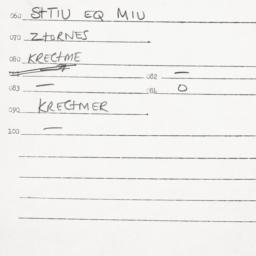 060 StTIU EQ MIU
070 ZtoRNES
080 KRECtME
082 —
083 — 084 O
090 KRECtMER
100 —